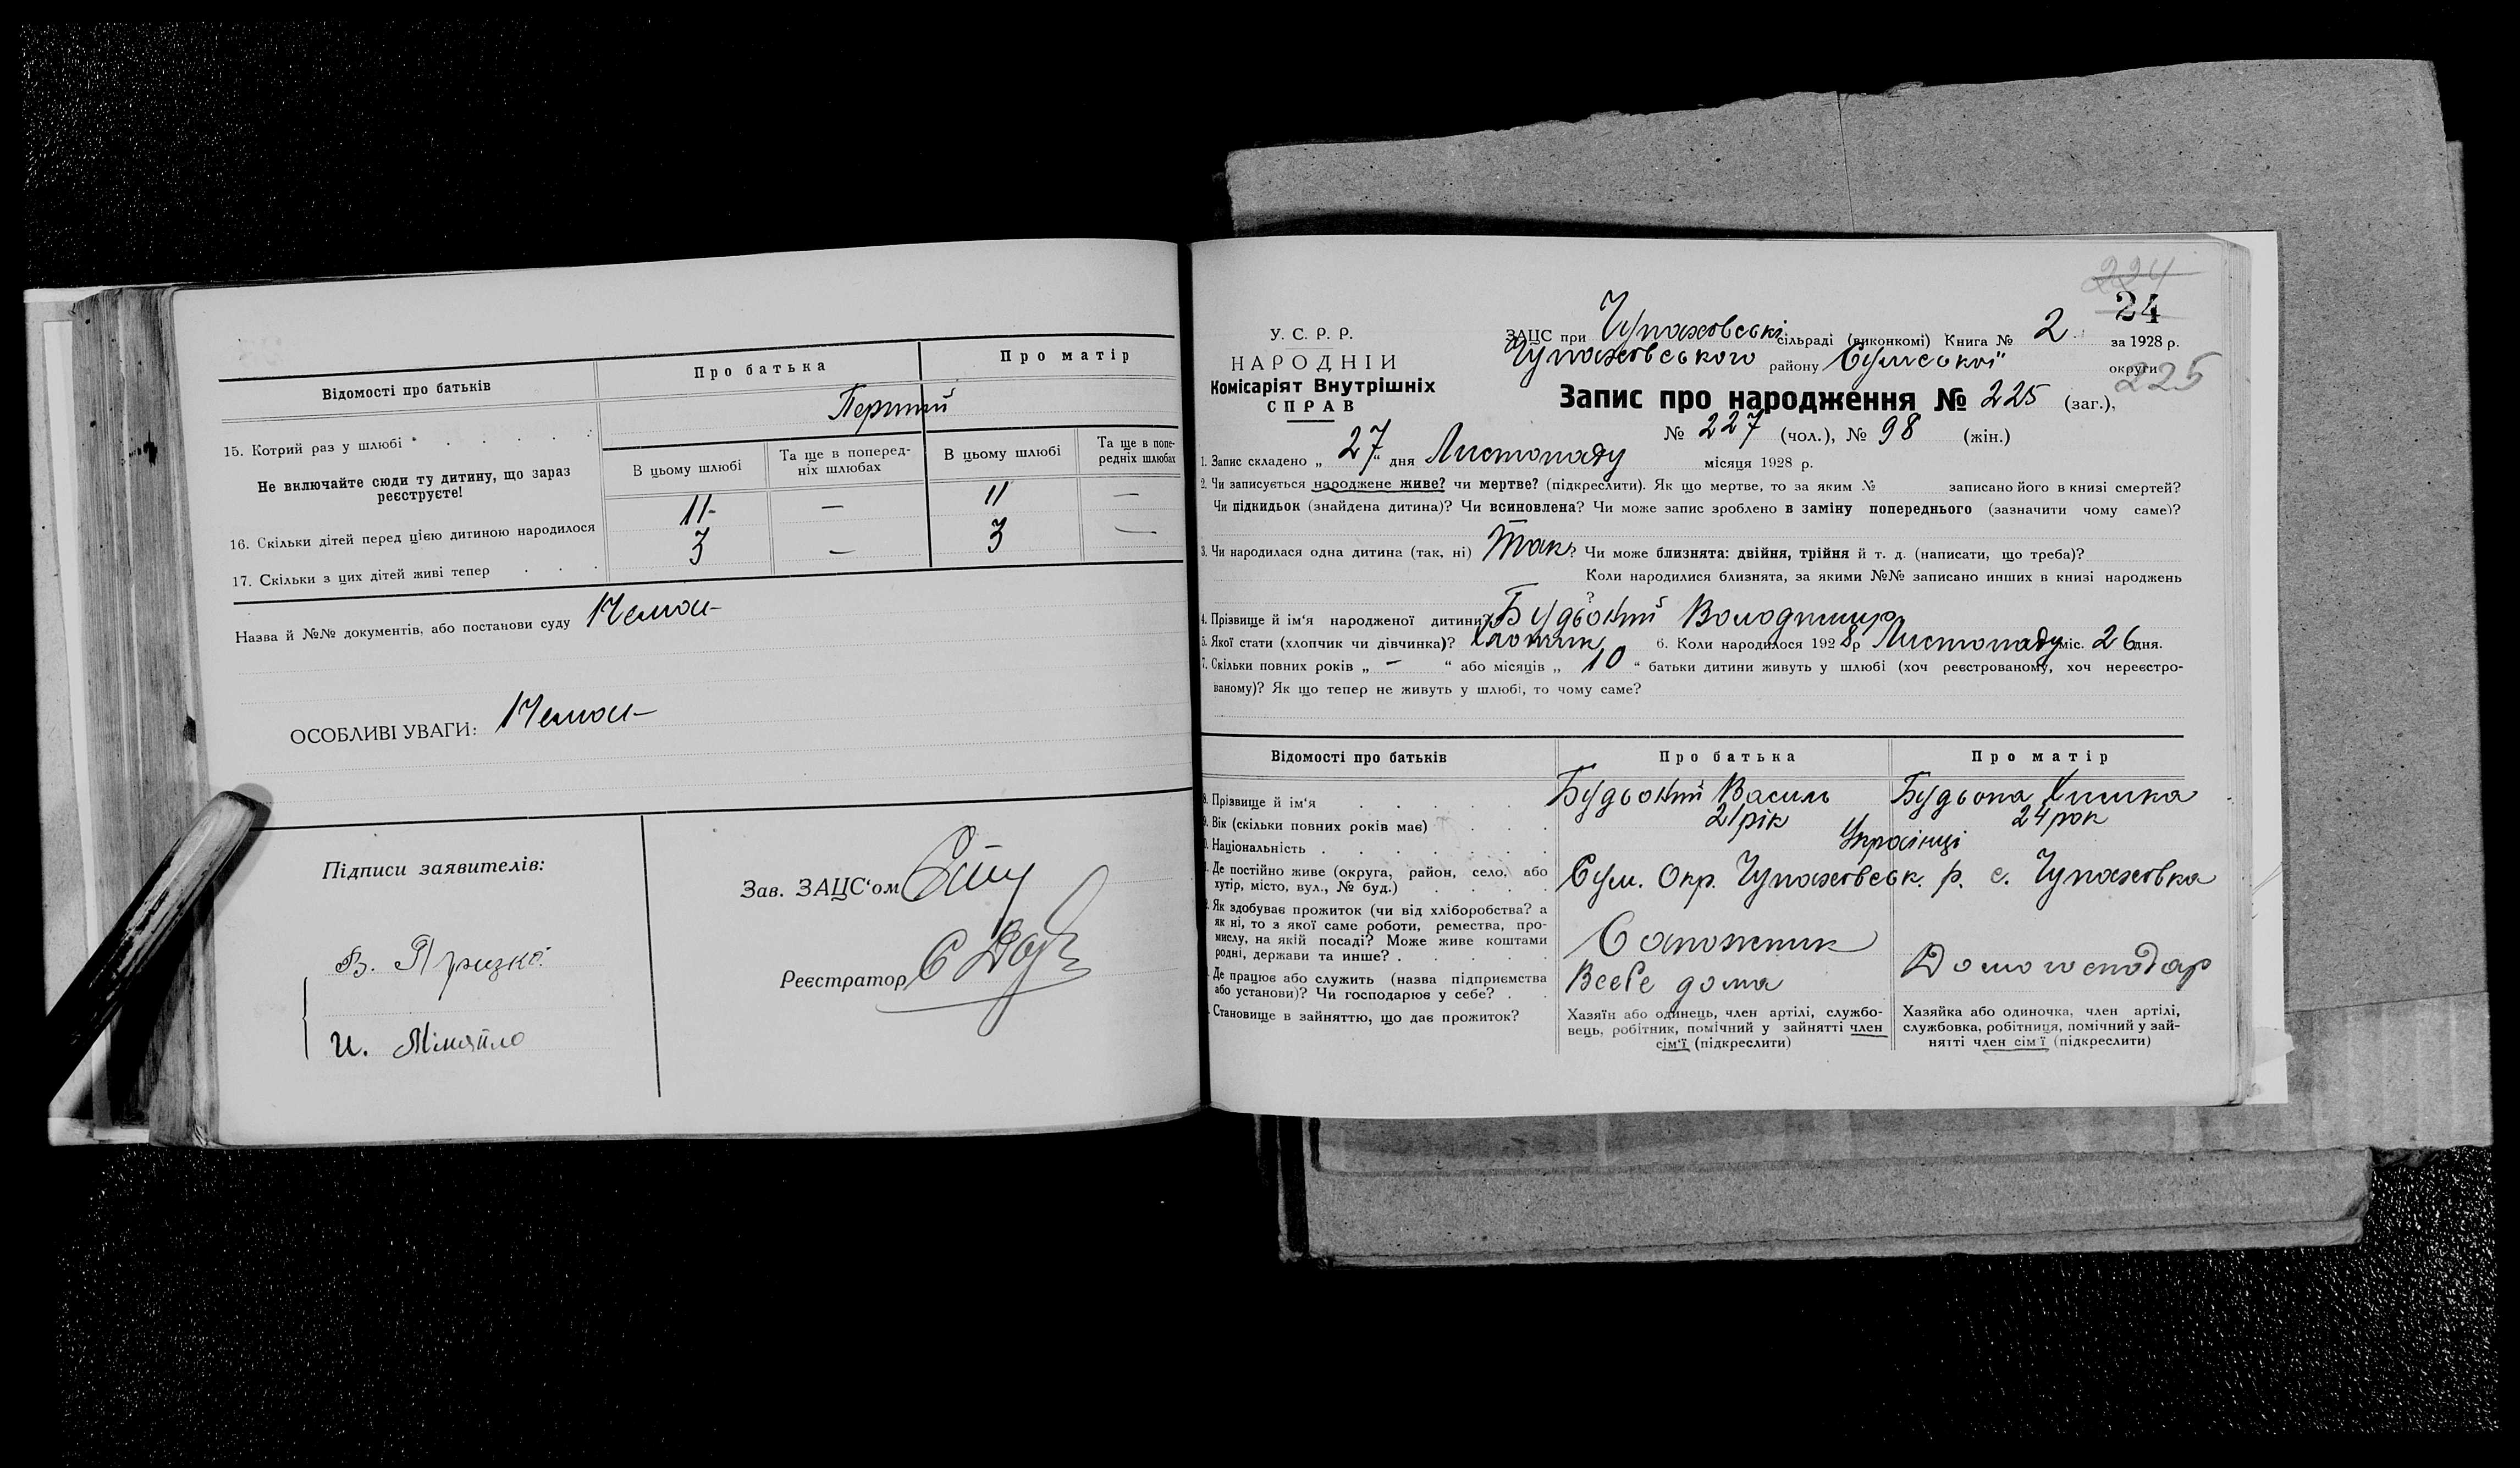 Відомості про батьків
Про батька
Про матір
15. Котрий раз у шлюбі
Перший
Не включайте сюди ту дитину, що зараз реєструєте!
В цьому шлюбі
Та ще в поперед-
ніх шлюбах
В цьому шлюбі
Та ще в попе-
редніх шлюбах
16. Скільки дітей перед цією дитиною народилося
11 - — 11 —
17. Скільки з цих дітей живі тепер
3 — 3 —
Назва й №№ документів, або постанови суду Немає
ОСОБЛИВІ УВАГИ: Немає
Підписи заявителів:
В. Призко
И. Міняйло
Зав. ЗАЦС‘ом
Реєстратор
224
24
У. С. Р. Р.
НАРОДНІЙ
Комісаріят Внутрішніх
СПРАВ
ЗАЦС при Чупахівські сільраді (виконкомі) Книга № 2 за 1928 р.
Чупахівського району Сумської округи
225
Запис про народження № 225 (заг.),
№ 227 (чол.), № 98 (жін.)
1. Запис складено „27“ дня Листопаду місяця 1928 р.
2. Чи записується народжене живе? чи мертве? (підкреслити). Як що мертве, то за яким № записано його в книзі смертей?
Чи підкидьок (знайдена дитина)? Чи всиновлена? Чи може запис зроблено в заміну попереднього (зазначити чому саме)?
—
3. Чи народилася одна дитина (так, ні) Так? Чи може близнята: двійня, трійня й т. д. (написати, що треба)?
Коли народилися близнята, за якими №№ записано инших в книзі народжень
?
4. Прізвище й ім‘я народженої дитини? Будьоний Володимир
5. Якої стати (хлопчик чи дівчинка)? Хлопчик 6. Коли народилося 1928 р Листопаду міс. 26 дня.
7. Скільки повних років „ — “ або місяців „ 10 “ батьки дитини живуть у шлюбі (хоч реєстрованому, хоч нереєстро-
ваному)? Як що тепер не живуть у шлюбі, то чому саме?
Відомості про батьків
Про батька
Про матір
8. Прізвище й ім‘я Будьоний Василь Будьона
9. Вік (скільки повних років має) 21 рік 24 рок
Національність Українці
Де постійно живе (округа, район, село, або
хутір, місто, вул., № буд.)
Сум. Окр. Чупахівськ. р. с. Чупахівка
Як здобуває прожиток (чи від хліборобства? а
як ні, то з якої саме роботи, ремества, про-
мислу, на якій посаді? Може живе коштами
родні, держави та инше?
Сапожник
Домогосподар
Де працює або служить (назва підприємства
або установи)? Чи господарює у себе?
Всебе дома
Становище в зайняттю, що дає прожиток?
Хазяїн або одинець, член артілі, службо-
вець, робітник, помічний у зайнятті член
сім‘ї (підкреслити)
Хазяйка або одиночка, член артілі,
службовка, робітниця, помічний у зай-
нятті член сім‘ї (підкреслити)